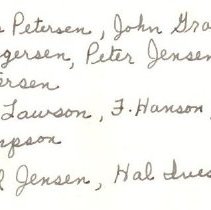 s Petersen, John Gra
gersen, Peter Jensen
ersen
Lawson, F. Hanson,
mpson
l Jensen, Hal Ives